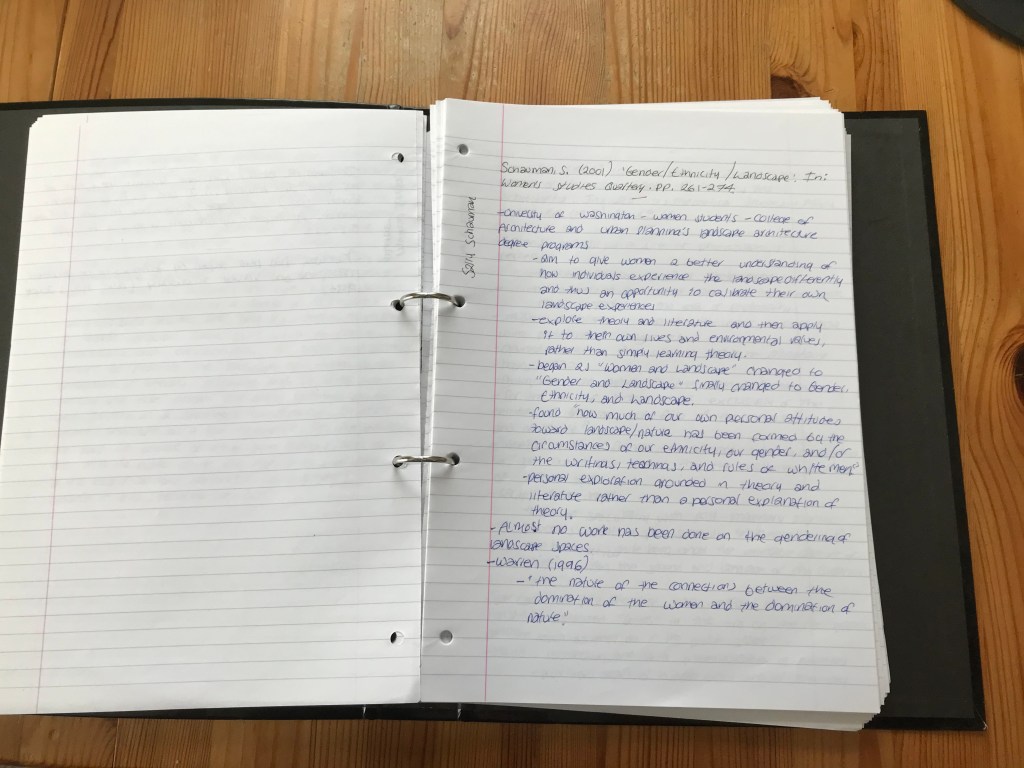 Sally Schauman
Schauman, S. (2001) 'Gender/Ethnicity/Landscape'. In:
Women's Studies Quartley. pp. 261-274
- University of Washington - women students - College of
Architecture and Urban Planning's landscape architecture
degree programs
- aim to give women a better understanding of
how individuals experience the landscape differently
and thus an opportunity to calibrate their own
landscape experiences
- explore theory and literature and then apply
it to their own lives and environmental values,
rather than simply learning theory.
- began as "Women and Landscape" changed to
"Gender and Landscape" finally changed to Gender,
Ethnicity, and Landscape.
- found "how much of our own personal attitudes
toward landscape/nature has been formed by the
circumstances of our ethnicity, our gender, and/or
the writings, teachings, and rules of white men"
- personal exploration grounded in theory and
literature rather than a personal explanation of
theory.
- Almost no work has been done on the gendering of
landscape spaces
- Warren (1996)
- "the nature of the connections between the
domination of the women and the domination of
nature."